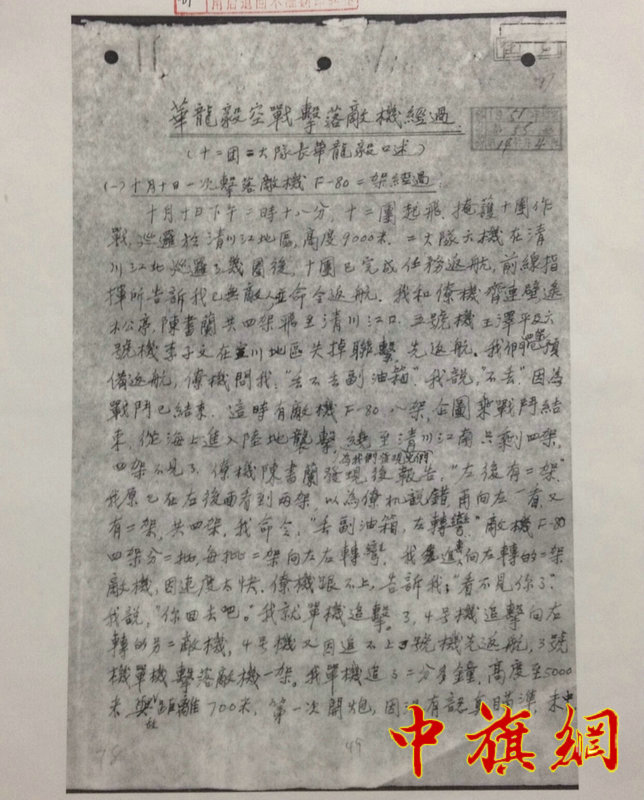 用后退回不准翻印
華龍毅空戰擊落敵機經過
(十二团二大隊長華龍毅口述)
(一)十月十日一次擊落敵機F-80二架經過:
十月十日下午二時十八分,十二團起飛,掩護十團作
戰,巡邏於清川江地區,高度9000米。二大隊六機在清
川江北巡邏了幾圈後,十團已完成任務返航,前線指
揮所告訴我已無敵人,並命令返航。我和僚機齊連璧遠
松亭,陳書蘭共四架飛至清川江口,五號機王澤平及六
號機李子文在宣川地區失掉聯繫,先返航。我們預
備返航,僚機問我:"丢不丢副油箱",我說,"不丢"因為
戰鬥已結束。這時有敵機F-80八架,企圖乘戰鬥結
束,從海上進入陸地襲擊,繞至清川江南只剩四架,
四架不見了,僚機陳書蘭發現後報告,"左後有二架"
為我們發現它們
我原已在左後面看到兩架,以為僚机說錯,再向左一看又
有二架,共四架,我命令,"丢副油箱,左轉彎"敵機F-80
四架分二批,每批二架向左右轉彎,我急追向右轉的二架
敵機,因速度太快,僚機跟不上,告訴我:"看不見你了"
我說,"你回去吧。"我就單機追擊。3,4号機追擊向左
轉的另二敵機,4号機又因追不上3號機先返航,3號
機單機擊落敵機一架。我單機追了二分多鐘,高度至5000
米與距離700米,第一次開炮,因没有認真瞄準,未中
78
49
中旗網